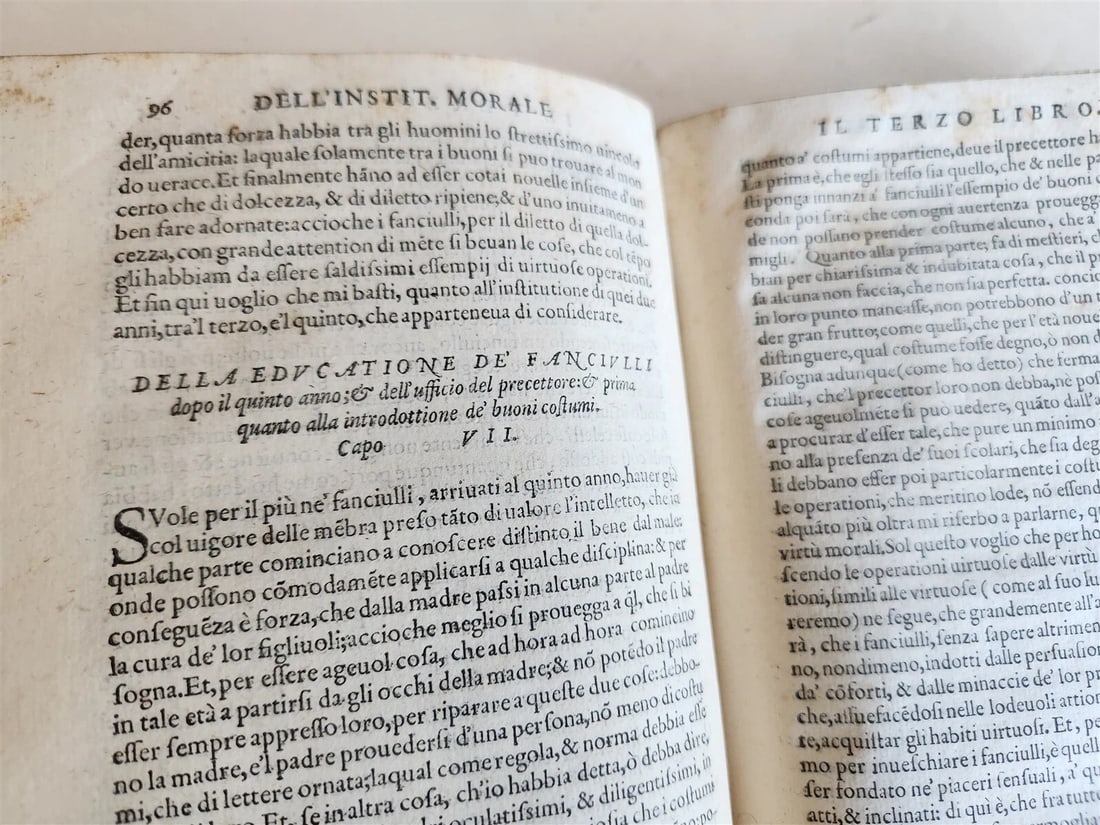 96 DELL'INSTIT. MORALE
der, quanta forza habbia tra gli huomini lo ſtrettiſſimo uincolo
dell'amicitia: laquale ſolamente tra i buoni ſi puo trouare al mon
do uerace. Et finalmente hãno ad eſſer cotai nouelle inſieme d'un
certo che di dolcezza, & di diletto ripiene; & d'uno inuitamento a
ben fare adornate: accioche i fanciulli, per il diletto di quella dol-
cezza, con grande attention di mẽte ſi beuan le coſe, che col tẽpo
gli habbiam da eſſere ſaldiſſimi eſſempij di uirtuoſe operationi.
Et fin qui uoglio che mi baſti, quanto all'inſtitutione di quei due
anni, tra'l terzo, e'l quinto, che apparteneua di conſiderare.
DELLA EDVCATIONE DE' FANCIVLLI
dopo il quinto ànno; & dell'ufficio del precettore: & prima
quanto alla introdottione de' buoni coſtumi.
Capo VII.
SVole per il più ne' fanciulli, arriuati al quinto anno, hauer già
col uigore delle mẽbra preſo tãto di ualore l'intelletto, che in
qualche parte cominciano a conoſcere diſtinto il bene dal male:
onde poſſono cõmodamẽte applicarſi a qualche diſciplina: & per
conſeguẽza è forza, che dalla madre paſsi in alcuna parte al padre
la cura de' lor figliuoli; accioche meglio ſi prouegga a q̃l, che ſi bi
ſogna. Et, per eſſere ageuol coſa, che ad hora ad hora comincino
in tale età a partirſi da gli occhi della madre; & nõ potẽdo il padre
eſſer ſempre appreſſo loro, per riparare a queſte due coſe: debbo-
no la madre, e'l padre prouederſi d'una perſona, nõ meno di coſtu
mi, che di lettere ornata; laqual come regola, & norma debbia eſſe
Et, ſe in altra coſa, ch'io habbia detta, ò debba dire,
oculatiſſimi, & diligentiſſimi, in
che i coſtumi
IL TERZO LIBRO.
quanto a' coſtumi appartiene, deue il precettore
La prima è, che egli iſteſſo ſia quello, che & nelle
ſti ponga innanzi a' fanciulli l'eſſempio de' buoni
conda poi ſarà, che con ogni auertenza
de non poſſano prender coſtume alcuno, che a'
migli. Quanto alla prima parte; fa di meſtieri,
bian per chiariſſima & indubitata coſa, che il
ſa alcuna non faccia, che non ſia perfetta.
in loro punto mancaſſe, non potrebbono d'un
der gran frutto; come quelli, che per l'età
diſtinguere, qual coſtume foſſe degno, ò non
Biſogna adunque (come ho detto) che
ciulli, che'l precettor loro non debba, nè
coſe ageuolmẽte ſi può uedere, quãto dall'
a procurar d'eſſer tale, che pure un minimo
no alla preſenza de' ſuoi ſcolari, che ſia
li debbano eſſer poi particolarmente i
le operationi, che meritino lode, nõ
alquãto più oltra mi riſerbo a parlarne,
virtù morali. Sol queſto voglio che per
ſcendo le operationi uirtuoſe dalle
tioni, ſimili alle virtuoſe (come al ſuo
reremo) ne ſegue, che grandemente
rà, che i fanciulli, ſenza ſapere
no, nondimeno, indotti dalle
da' cõforti, & dalle minaccie de' lor
che, aſſuefacẽdoſi nelle lodeuoli
re, acquiſtar gli habiti uirtuoſi. Et,
mo per inueſchiare i fanciulli, è
ſer fondato ne' piaceri ſenſuali, a'
atti, & inclinati: di quì è, che fra